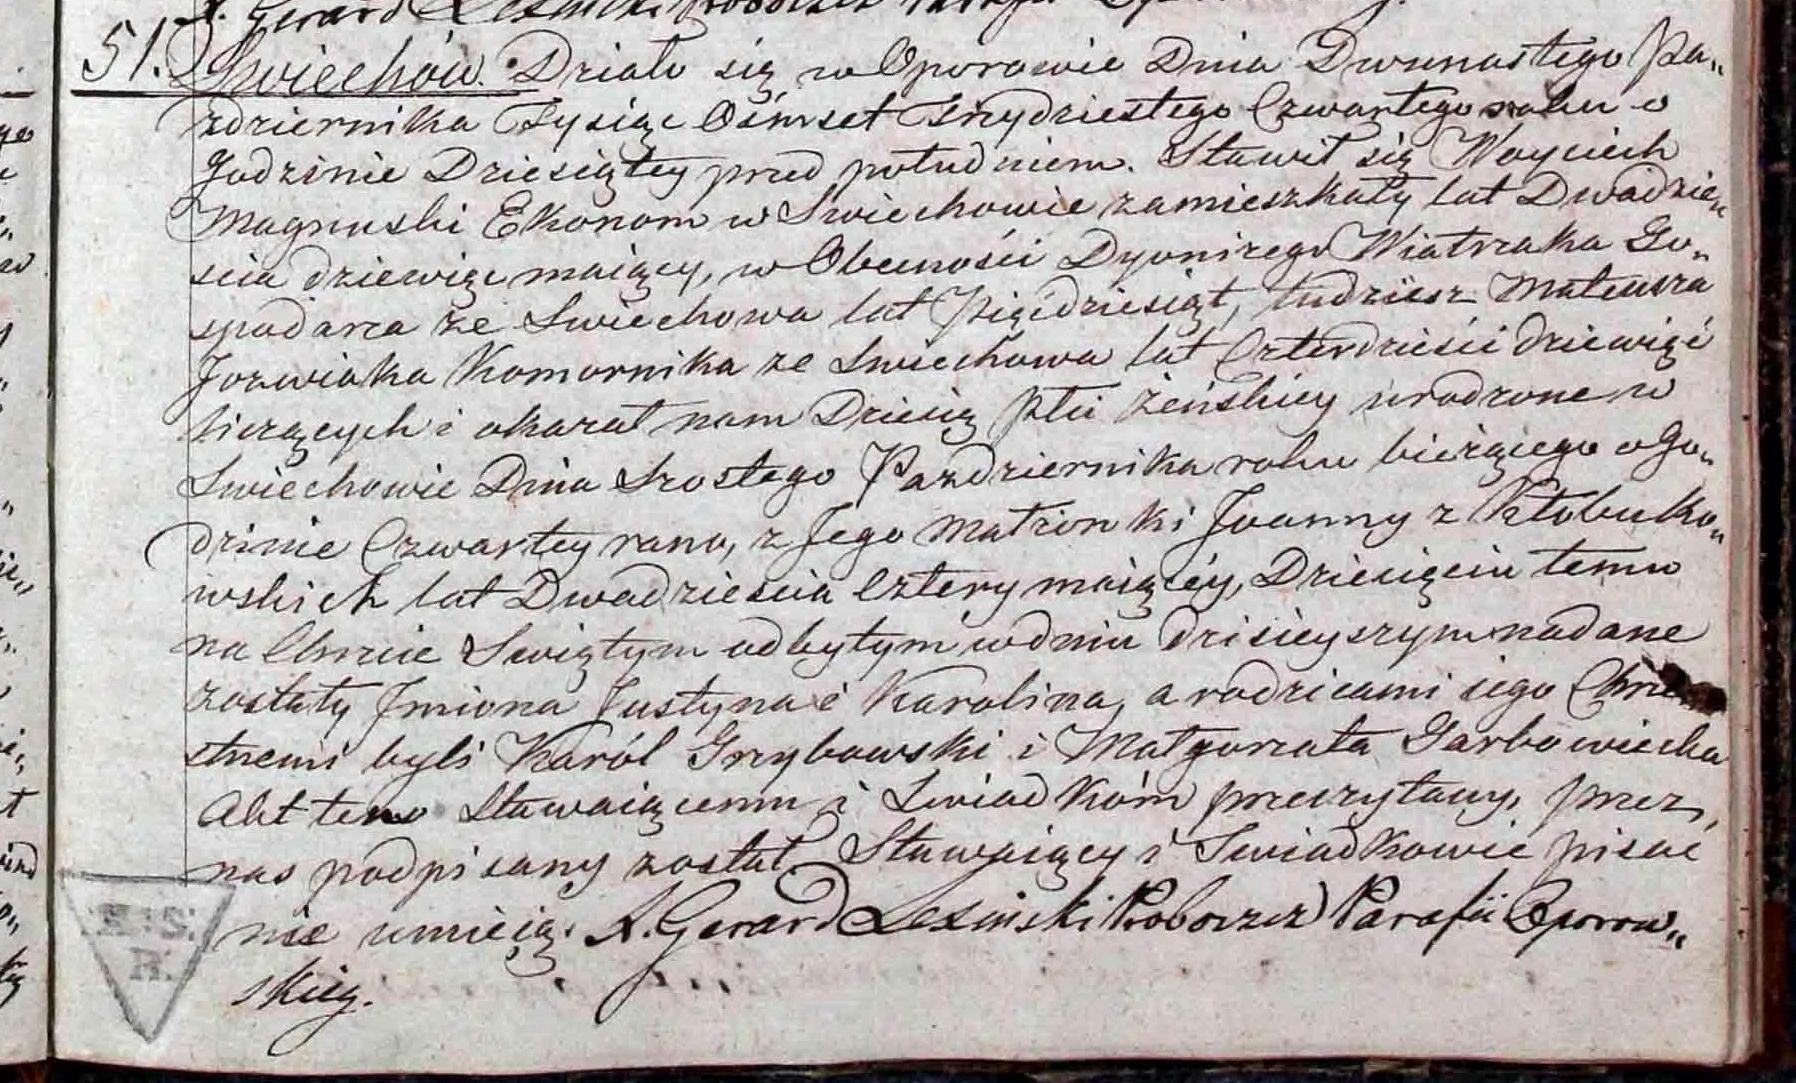 X. Gerard Lesinski Proboszcz Parafii
51. Swiechów. Działo się w Oporowie Dnia Dwunastego Pa„
zdziernika Tysiąc Ośmset Trzydziestego Czwartego roku o
Godzinie Dziesiątey przed południem. Stawił się Woyciech
Magnuski Ekonom w Swiechowie zamieszkały lat Dwadzie„
scia dziewięc maiący, w Obecności Dyonizego Wiatraka Go„
spodarza ze Swiechowa lat Pięćdziesiąt, tudziesz Mateusza
Jozwiaka Komornika ze Swiechowa lat Czterdzieści dziewięć
liczących i okazał nam Dziecię płci żeńskiey urodzone w
Swiechowie Dnia Szostego Pazdziernika roku bieżącego o Go„
dzinie Czwartey rano, z Jego Małżonki Joanny z Kłobuko„
wskich lat Dwadzieścia Cztery maiącéy, Dziecięciu temu
na Chrzcie Swiętym odbytym w dniu dzisieyszym nadane
zostały Jmiona Justyna i Karolina, a rodzicami iego Chrze
stnemi byli Karól Grzybowski i Małgorzata Garbowiecka
Akt ten Stawaiącemu i Swiadkóm przeczytany, przez
nas podpisany został Stawaiący i Swiadkowie pisac
nie umieią. X. Gerard Lesinski Proboszcz Parafii Oporow„
skiey.